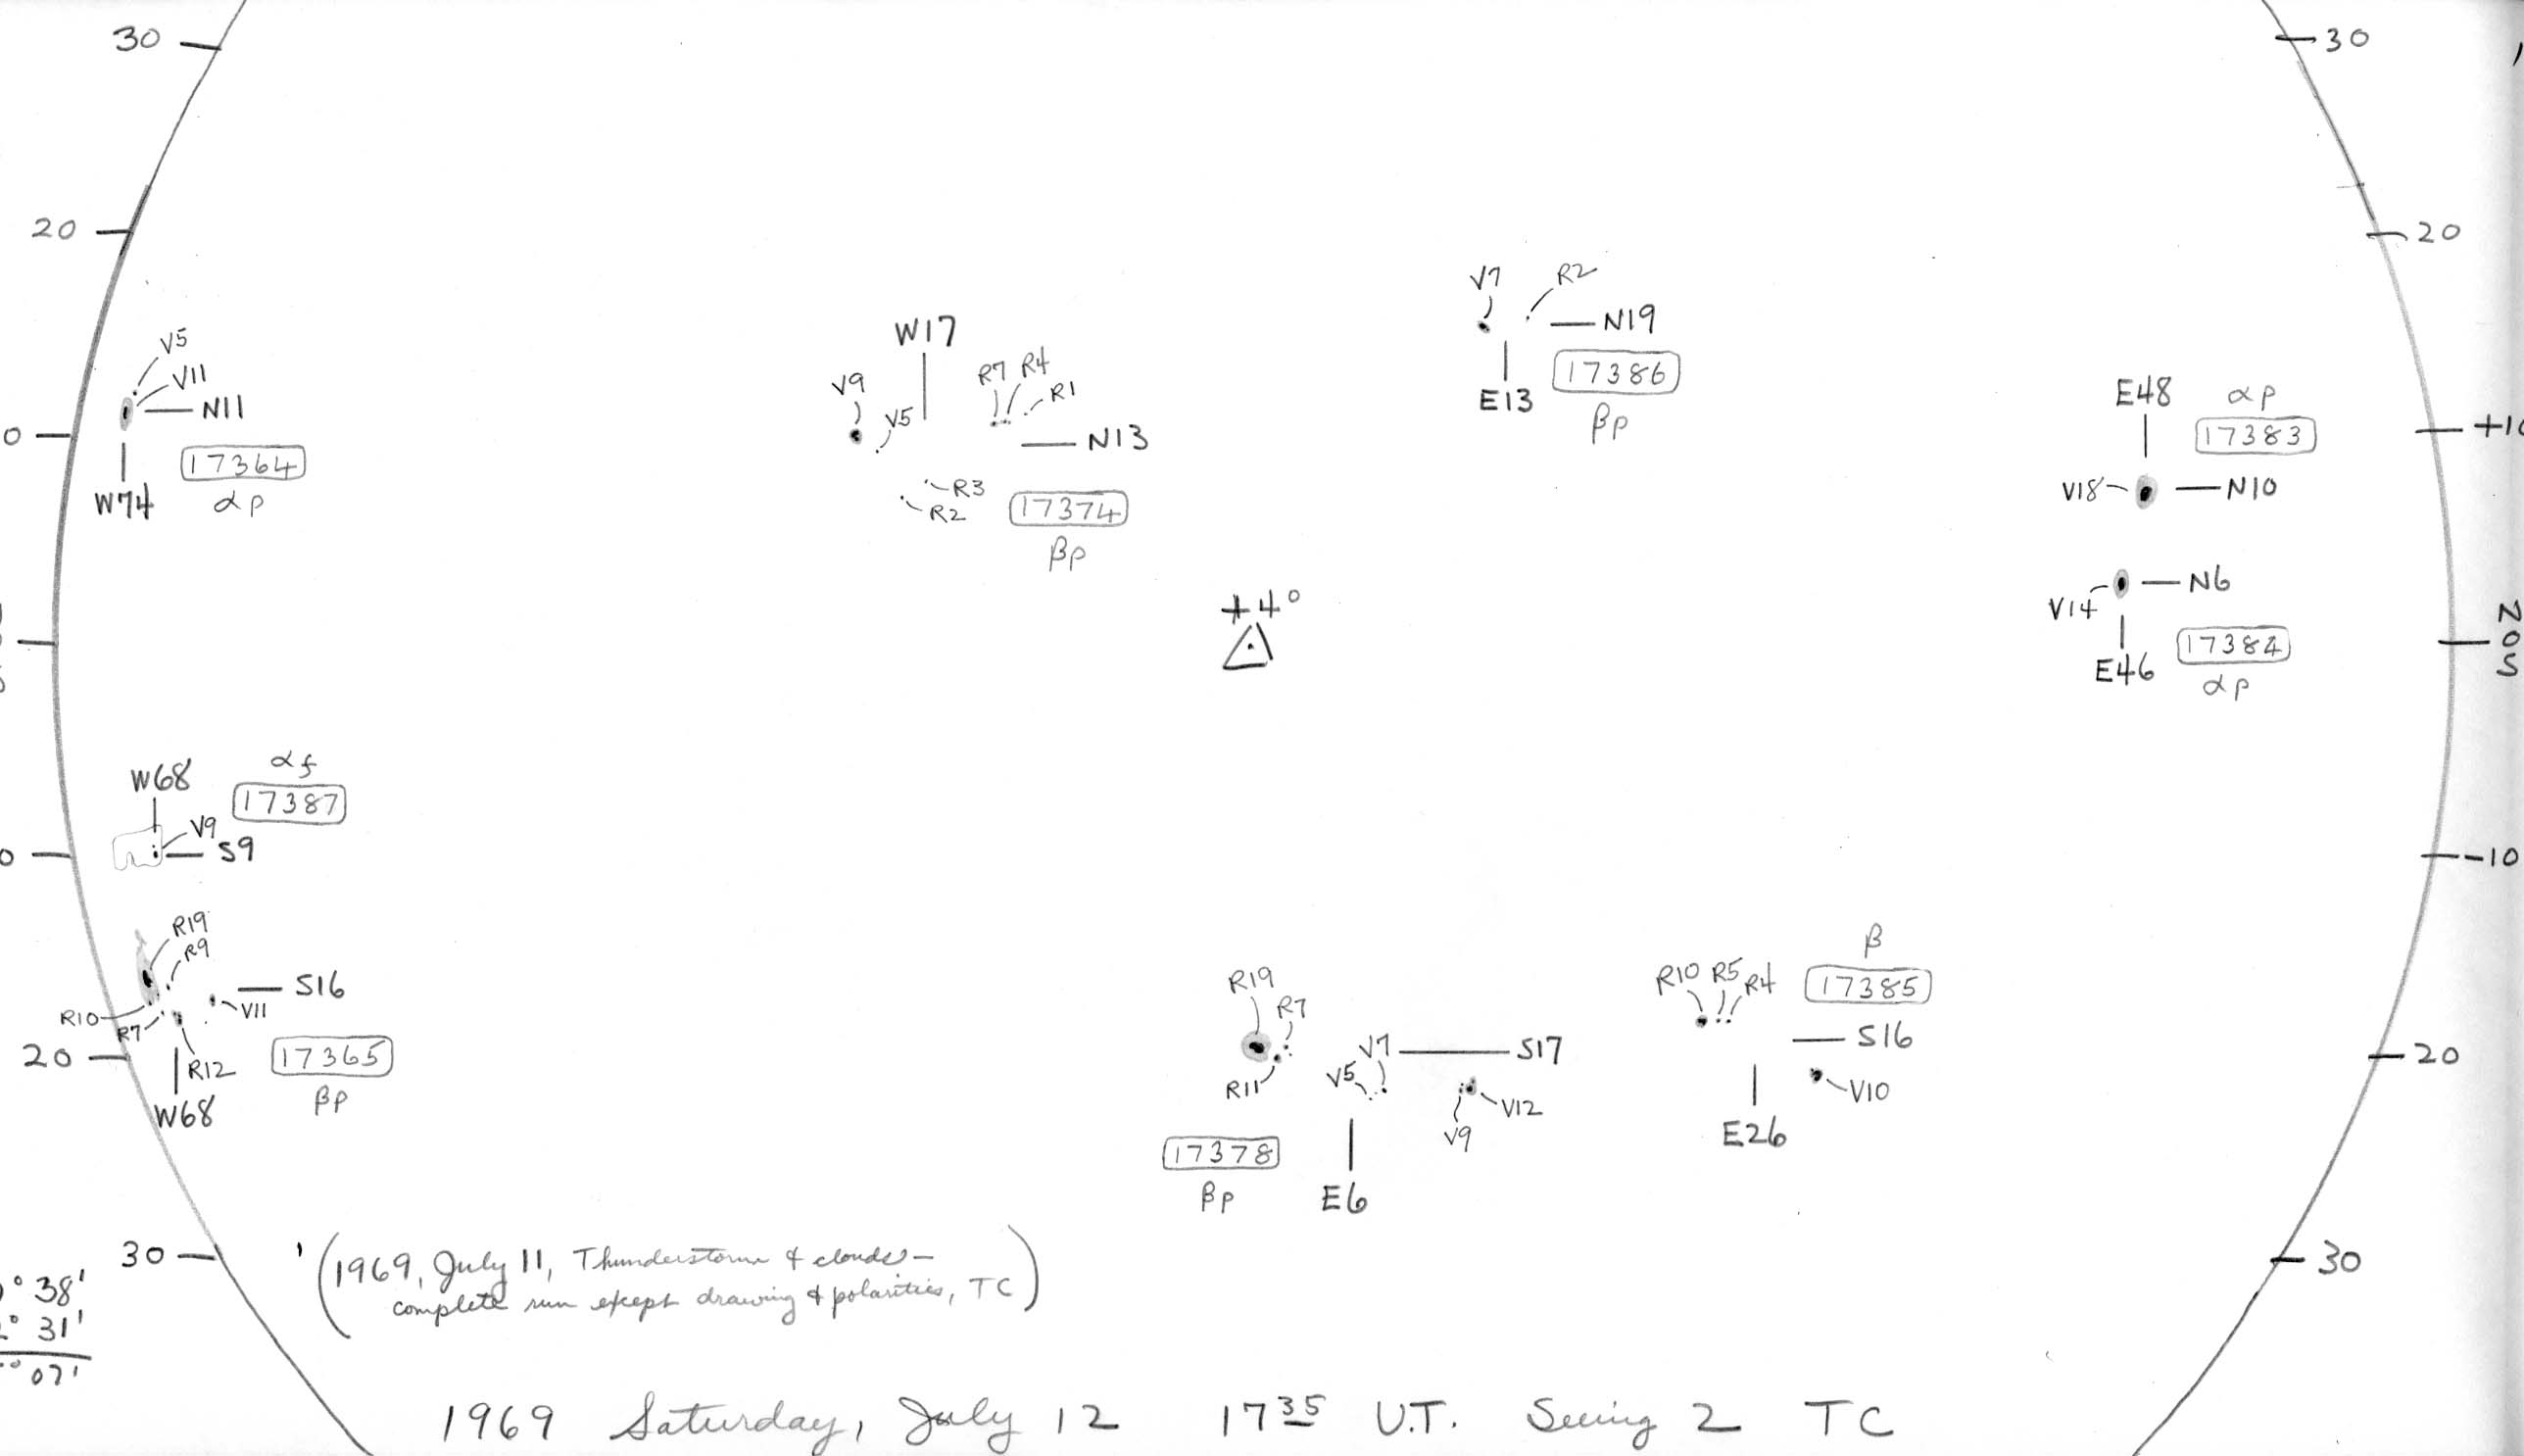 30
30
20
20
V5
V11
N11
17364
αp
W74
W17
V9
V5
R7 R4
R1
N13
R3
R2
17374
βp
V7
R2
N19
17386
E13
βp
E48
αp
17383
+10
V18
N10
N6
V14
17384
E46
αp
N
0
S
+4°
W68
αf
17387
V9
S9
-10
R19
R9
S16
V11
R10
R7
R12
17365
20
W68
βp
R19
R7
R11
V7
V5
S17
V12
V9
17378
βp
E6
R10 R5 R4
β
17385
S16
V10
E26
20
30
30
(1969, July 11, Thunderstorm & clouds—
complete run except drawing & polarities, TC)
° 38'
° 31'
° 07'
1969 Saturday, July 12 17 35 U.T. Seeing 2 TC